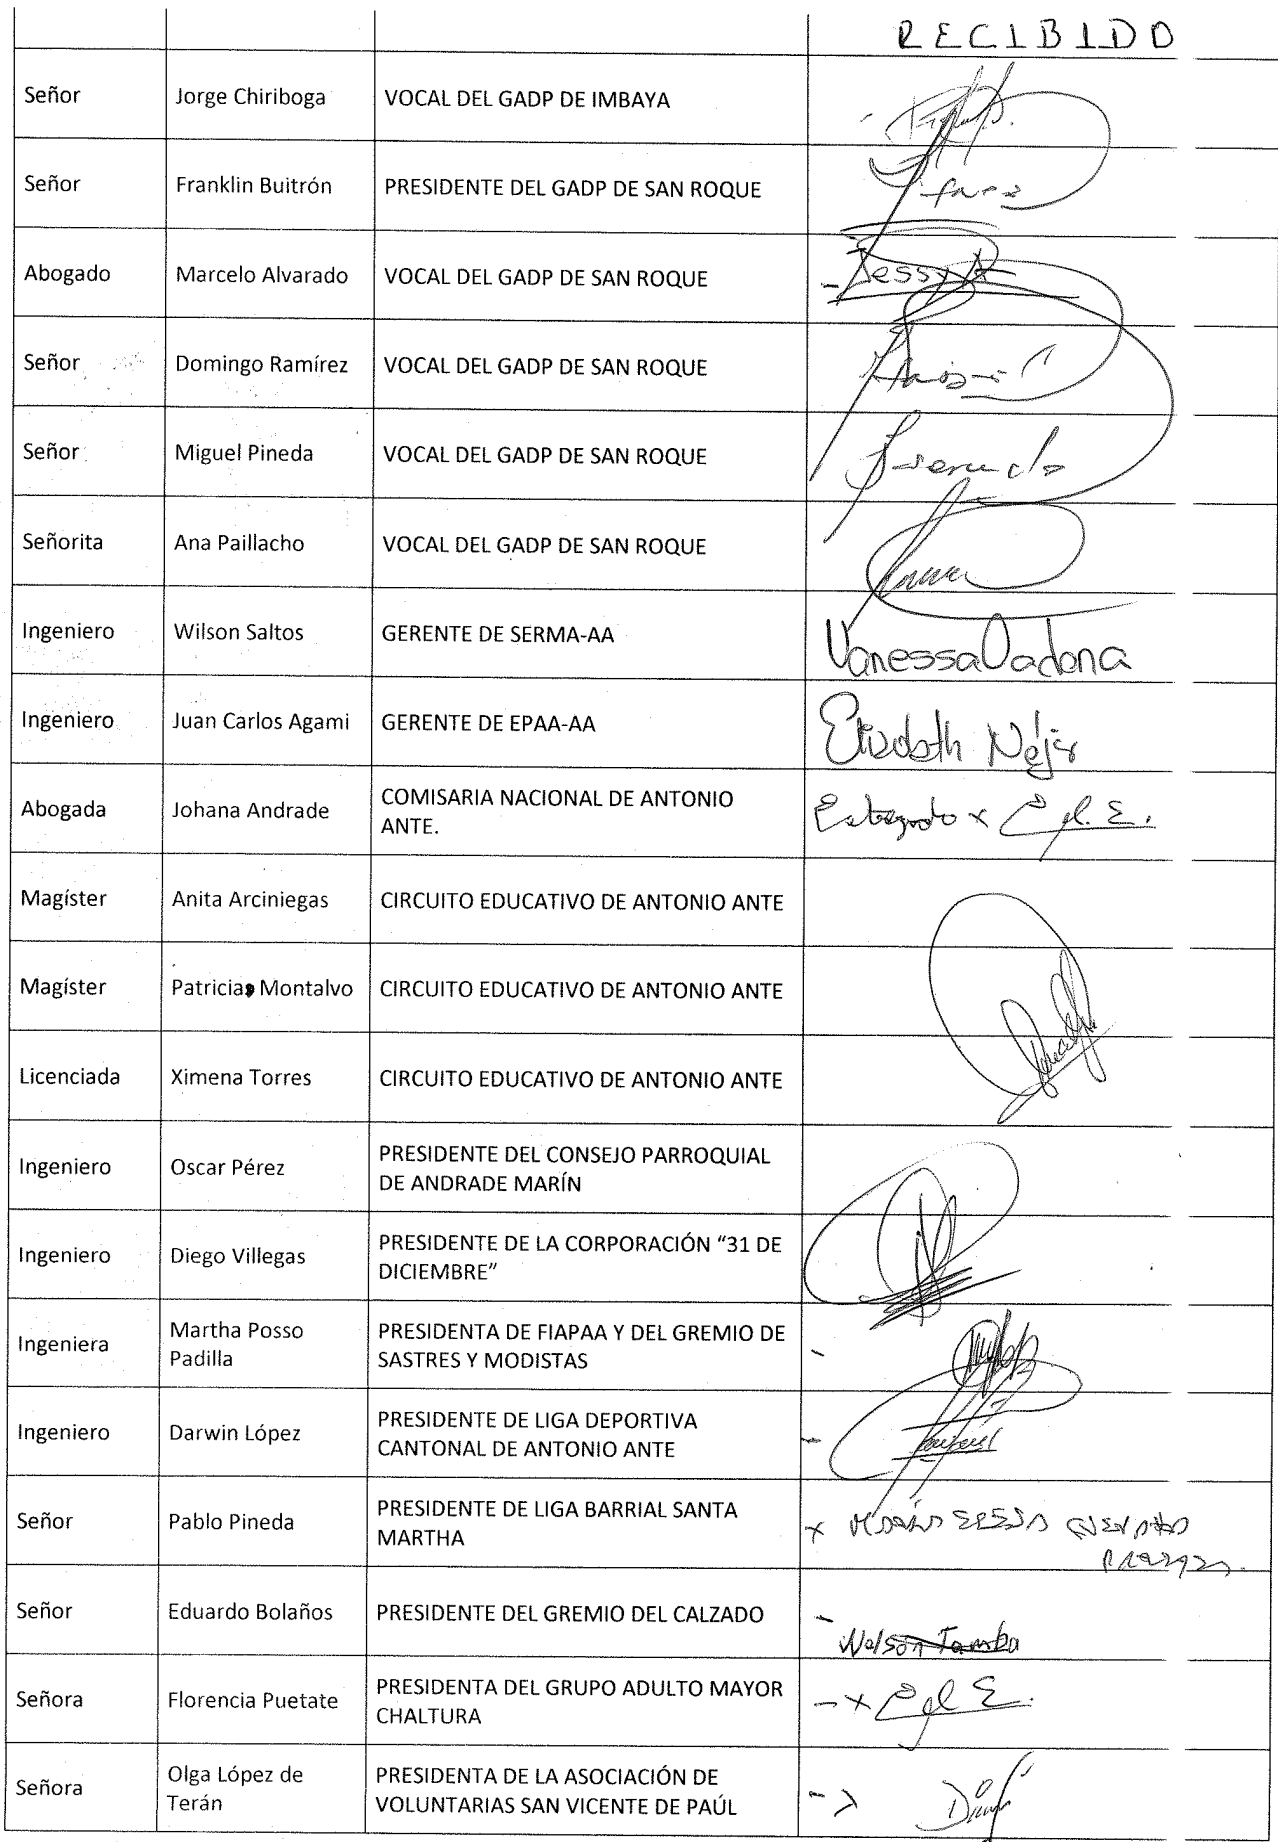 RECIBIDO
Señor Jorge Chiriboga VOCAL DEL GADP DE IMBAYA
Señor Franklin Buitrón PRESIDENTE DEL GADP DE SAN ROQUE
Abogado Marcelo Alvarado VOCAL DEL GADP DE SAN ROQUE Jessy
Señor Domingo Ramírez VOCAL DEL GADP DE SAN ROQUE
Señor Miguel Pineda VOCAL DEL GADP DE SAN ROQUE
Señorita Ana Paillacho VOCAL DEL GADP DE SAN ROQUE
Ingeniero Wilson Saltos GERENTE DE SERMA-AA Vanessa Cadena
Ingeniero Juan Carlos Agami GERENTE DE EPAA-AA Elizabeth
Abogada Johana Andrade COMISARIA NACIONAL DE ANTONIO
ANTE.
Magíster Anita Arciniegas CIRCUITO EDUCATIVO DE ANTONIO ANTE
Magíster Patricia Montalvo CIRCUITO EDUCATIVO DE ANTONIO ANTE
Licenciada Ximena Torres CIRCUITO EDUCATIVO DE ANTONIO ANTE
Ingeniero Oscar Pérez PRESIDENTE DEL CONSEJO PARROQUIAL
DE ANDRADE MARÍN
Ingeniero Diego Villegas PRESIDENTE DE LA CORPORACIÓN “31 DE
DICIEMBRE”
Ingeniera Martha Posso PRESIDENTA DE FIAPAA Y DEL GREMIO DE
Padilla SASTRES Y MODISTAS
Ingeniero Darwin López PRESIDENTE DE LIGA DEPORTIVA
CANTONAL DE ANTONIO ANTE
Señor Pablo Pineda PRESIDENTE DE LIGA BARRIAL SANTA
MARTHA
Señor Eduardo Bolaños PRESIDENTE DEL GREMIO DEL CALZADO
Nelson Tamba
Señora Florencia Puetate PRESIDENTA DEL GRUPO ADULTO MAYOR
CHALTURA
Señora Olga López de PRESIDENTA DE LA ASOCIACIÓN DE
Terán VOLUNTARIAS SAN VICENTE DE PAÚL